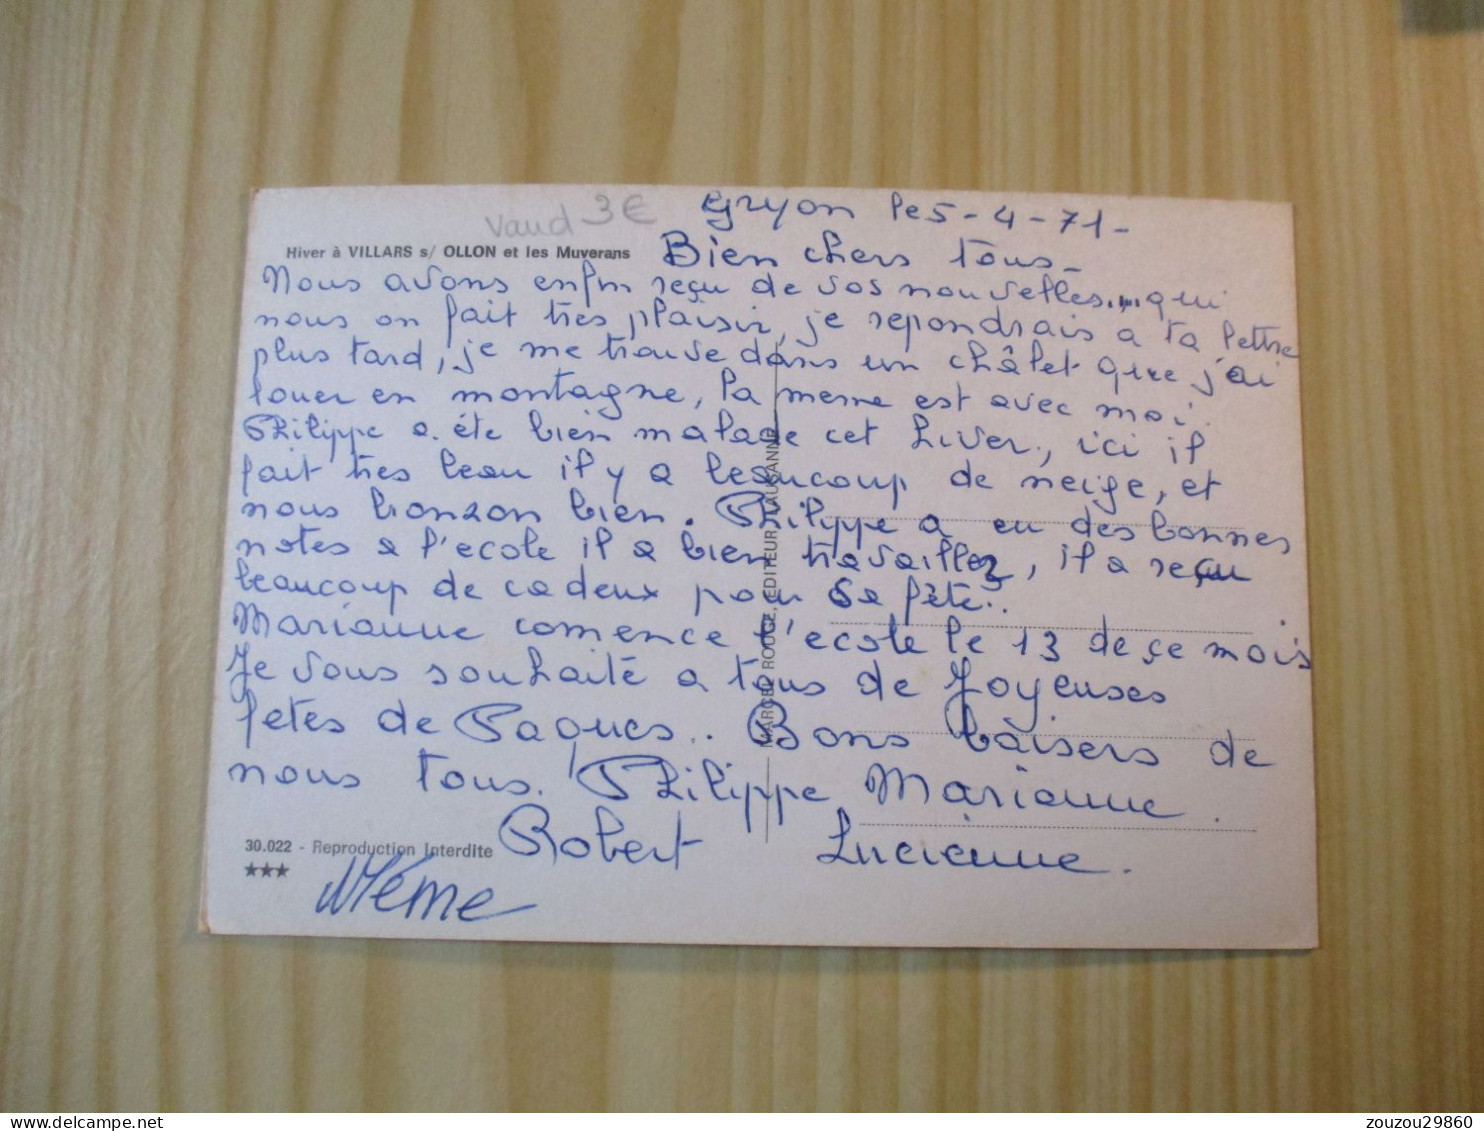 Vaud 3€
Gryon le 5-4-71-
Hiver à VILLARS s/ OLLON et les Muverans
Bien chers tous-
Nous avons enfin reçu de vos nouvelles.... qui
nous on fait très plaisir, je repondrais a ta lettre
plus tard, je me trouve dans un châlet que j'ai
louer en montagne, la meme est avec moi.
Philippe a éte bien malade cet hiver, ici il
fait tres beau il y a beaucoup de neige, et
nous bronzon bien. Philippe a eu des bonnes
notes a l'ecole il a bien travaillez, il a reçu
beaucoup de cadeux pour sa fête..
Marianne comence l'ecole le 13 de çe mois
Je vous souhaité a tous de Joyeuses
fetes de Paques.. Bons baisers de
nous tous. Philippe, Marianne.
Robert Lucienne.
Méme
30.022 - Reproduction Interdite
★★★
MARCEL ROUGE, EDITEUR, LAUSANNE
delcampe.net
zouzou29860